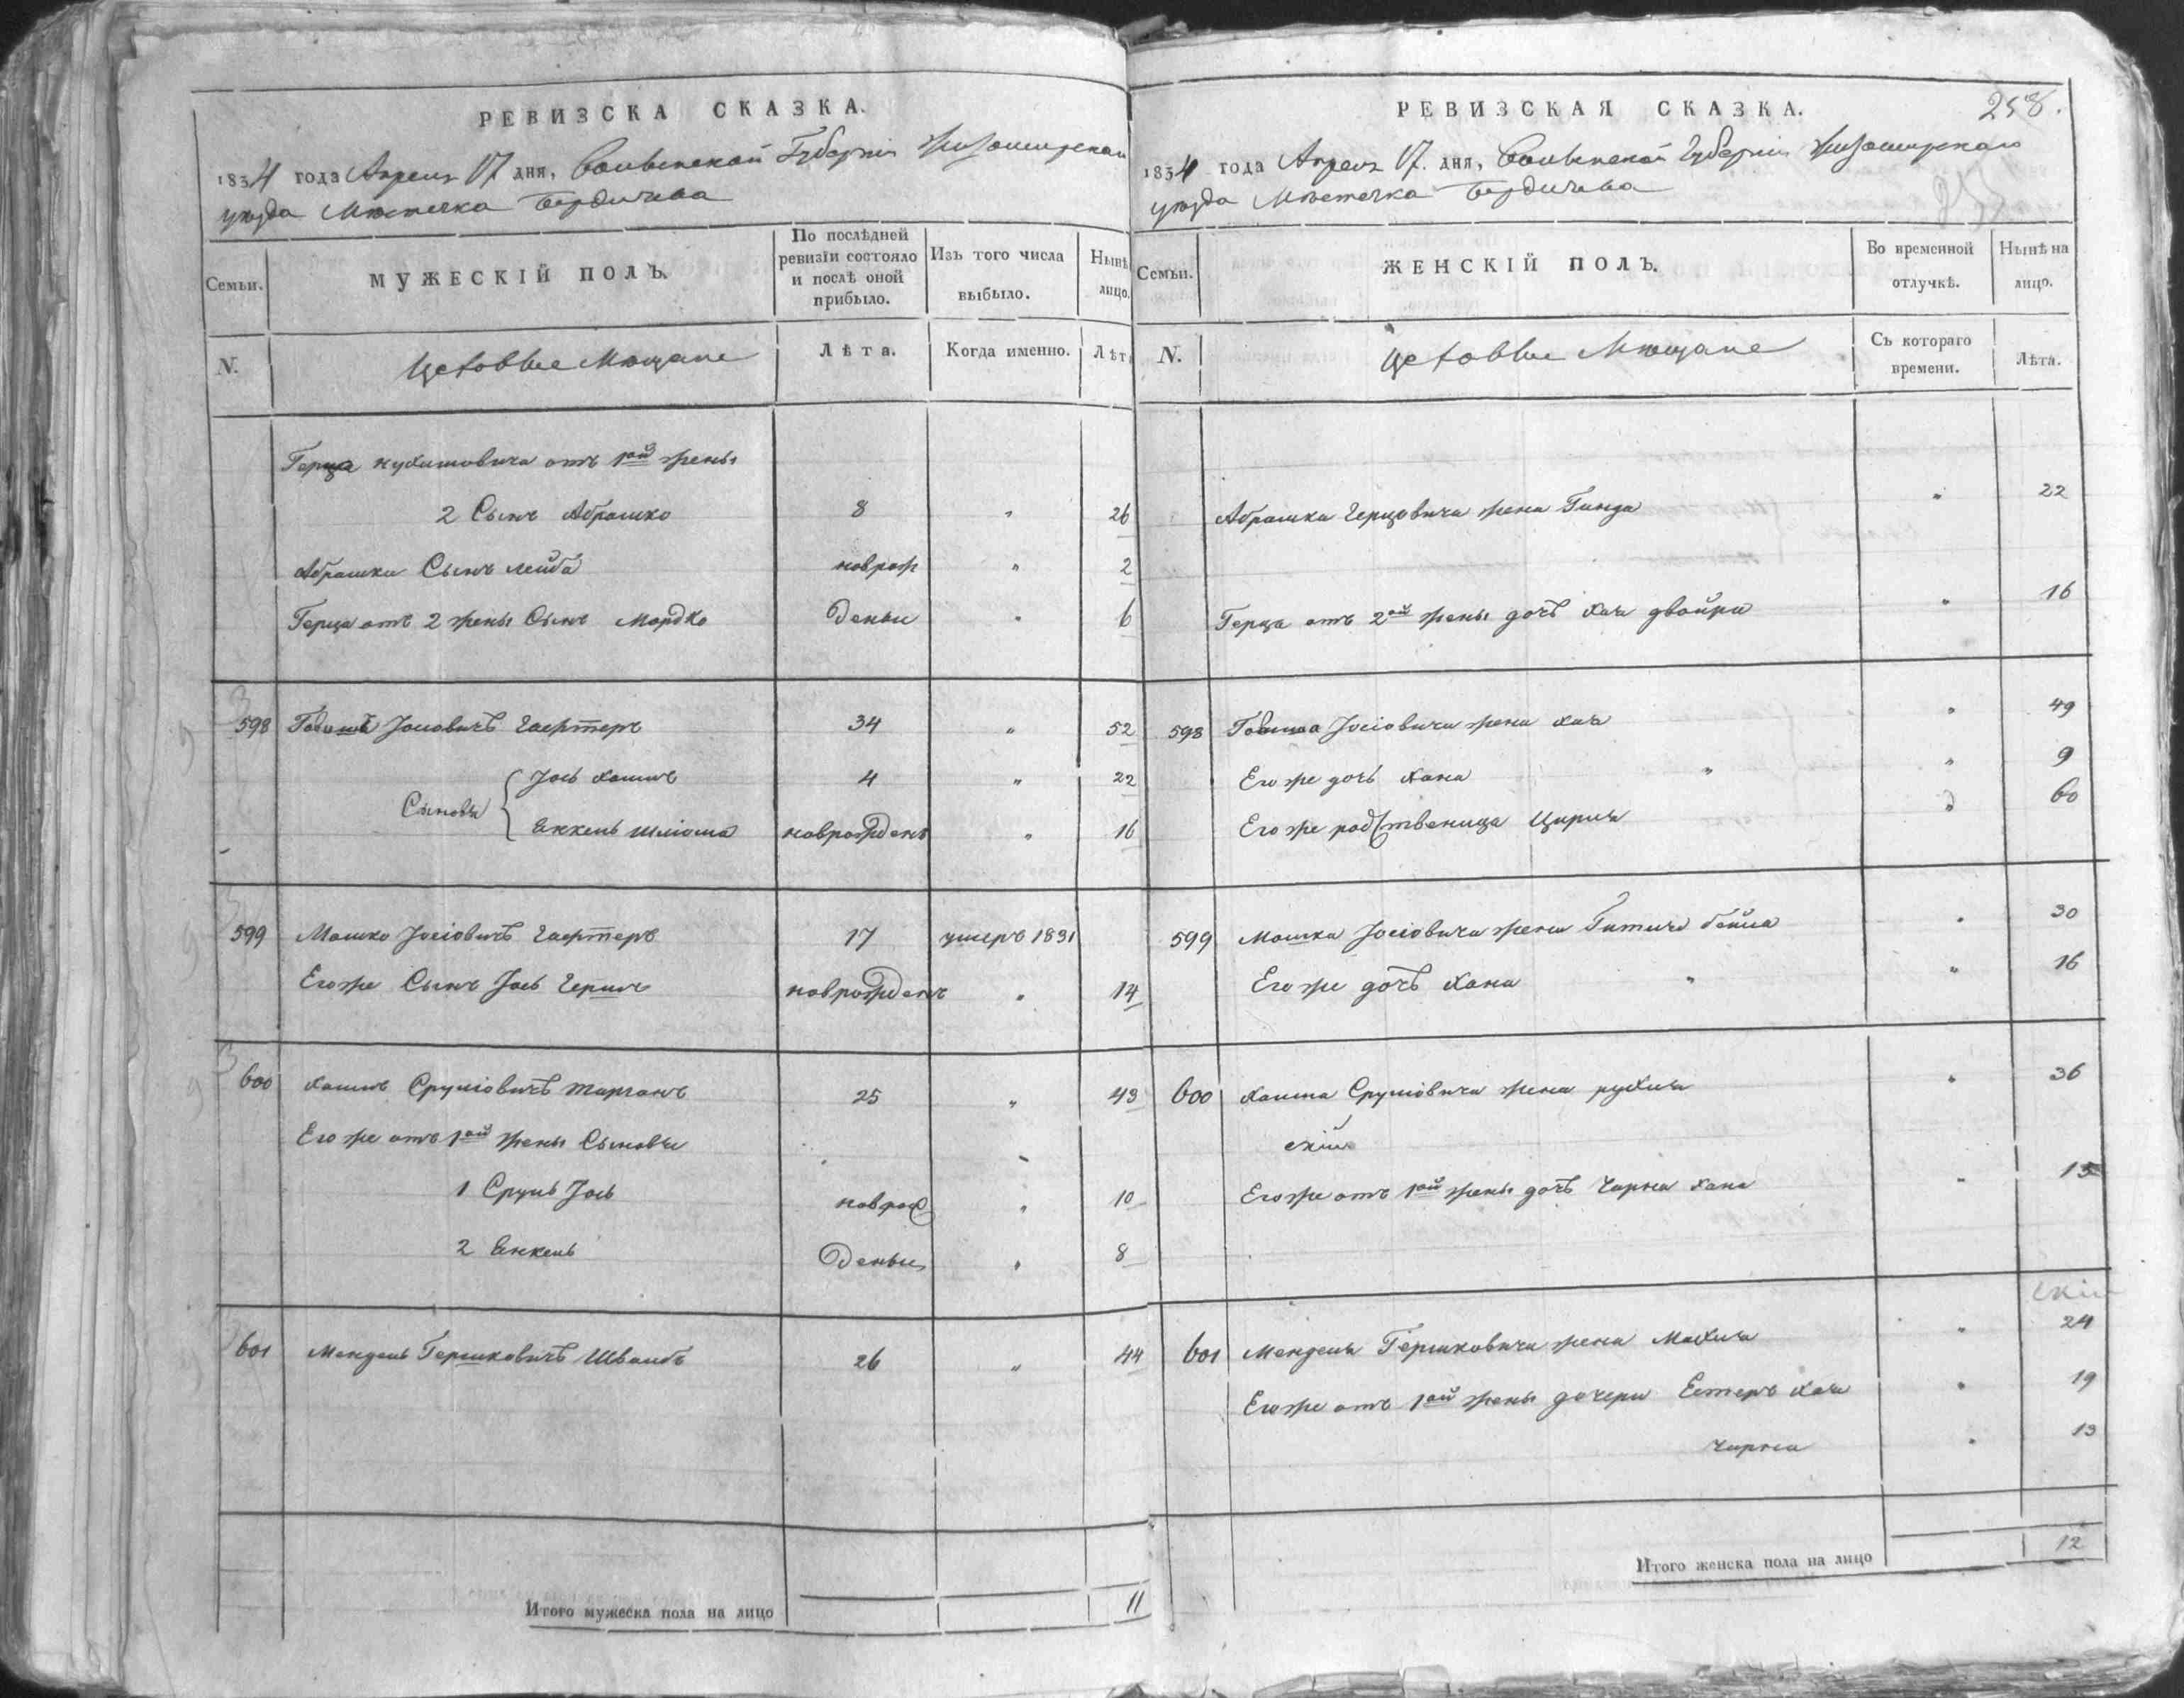 РЕВИЗСКА СКАЗКА.
1834 года Апреля 17 дня, Волынской Губернiи Житомирскаго
уѣзда Мѣстечка Бердичева
Семьи.
МУЖЕСКIЙ ПОЛЪ.
По послѣдней
ревизiи состояло
и послѣ оной
прибыло.
Изъ того числа
выбыло.
Нынѣ
лицо.
N.
Цеховые Мещане
Лѣта.
Когда именно.
Лѣт
Герца от 1ой жены
2 Сынъ Абрашко 8 " 26
Абрашки Сынъ Лейба новрож " 2
Герца отъ 2 жены Сынъ Мордко денны " 6
598 Iосiовичъ 34 " 52
Сыновья Iось Хаимъ 4 " 22
Янкель Шлiома новрожденъ " 16
599 Мошко Iосiовичъ 17 умеръ 1831
Егоже Сынъ Iось Гершъ новрожденъ " 14
600 Хаимъ Сруліовичъ Тарганъ 25 " 43
Его же отъ 1ой жены Сыновья " "
1 Сруль Iось новрож " 10
2 Янкель денны " 8
601 Мендель Гершковичъ Швальбъ 26 " 44
Итого мужеска пола на лицо 11
РЕВИЗСКАЯ СКАЗКА.
258.
1834 года Апреля 17. дня, Волынской Губернiи Житомирскаго
уѣзда Мѣстечка Бердичева
Семьи.
ЖЕНСКIЙ ПОЛЪ.
Во временной
отлучкѣ.
Нынѣ на
лицо.
N.
Цеховые Мещане
Съ котораго
времени.
Лѣта.
Абрашка Герцовича жена Гинда " 22
Герца отъ 2ой жены дочь Хая двойра " 16
598 Iосiовича жена Хая " 49
Его же дочь Хана " " 9
Его же родственица Цирля " 60
599 Мошка Iосiовича жена Гитля бейла " 30
Его же дочь Хана " " 16
600 Хаима Срулiовича жена рухля " 36
Его же отъ 1ой жены дочь Чарна Хана " 15
601 Менделя Гершковича жена Махля " 24
Его же отъ 1ой жены дочери Естеръ Хая " 19
Чарна " 13
Итого женска пола на лицо 12